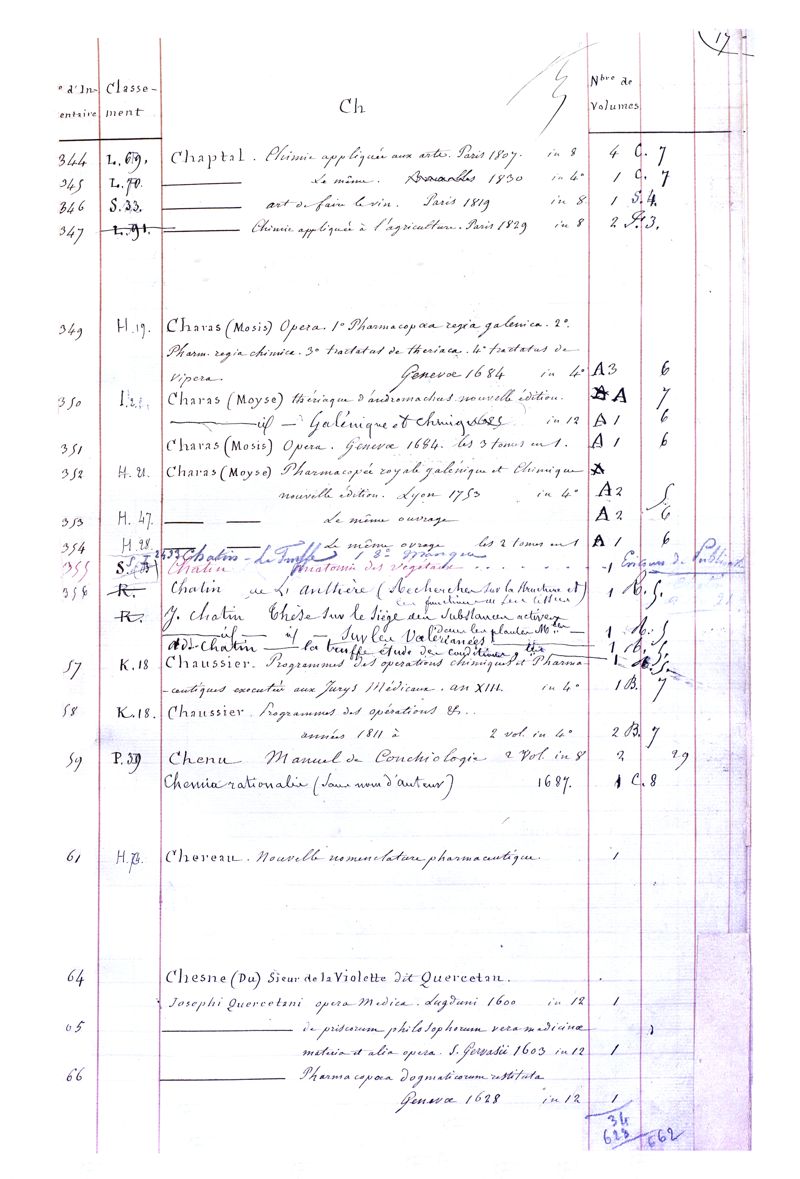 17
° d'In- Classe- Nbre de
entaire ment Ch Volumes
344 L. 69. Chaptal. Chimie appliquée aux arts. Paris 1807. in 8 4 C. 7
345 L. 70. Le même. 1830 in 4° 1 C. 7
346 S. 33. art de faire le vin. Paris 1819 in 8 1 S. 4.
347 L. 91. Chimie appliquée à l'agriculture. Paris 1829 in 8 2 3.
349 H. 19. Charas (Mosis) Opera. 1° Pharmacopœa regia galenica. 2°.
Pharm. regia chimica. 3° tractatus de theriaca. 4° tractatus de
vipera. Genevæ 1684 in 4° A 3 6
350 Charas (Moyse) thériaque d'andromachus nouvelle édition. A 7
id — Galénique et chimique 1685 in 12 A 1 6
351 Charas (Mosis) Opera. Genevæ 1684. les 3 tomes en 1. A 1 6
352 H. 21. Charas (Moyse) Pharmacopée royale galénique et Chimique A
nouvelle édition. Lyon 1753 in 4° A 2 5
353 H. 47. Le même ouvrage A 2 6
354 H. 28. Le même ouvrage les 2 tomes en 1 A 1 6
2433 Chatin - La Truffe 1 8° manque
355 S. Chatin Anatomie des végétaux 1 En cours de Publicat
356 R. Chatin de L'anthère (Recherches sur la structure et) 1 R. 5.
les fonctions de
R. J. Chatin Thèse sur le Siège des Substances actives
dans les plantes Mles
id id sur les Valérianées 1 R. 5
ad. Chatin — la truffe étude des conditions 1 R. 5.
57 K. 18 Chaussier. Programmes des opérations chimiques et Pharma- 1 5.
-ceutiques executées aux Jurys Médicaux. an XIII. in 4° 1 B. 7
58 K. 18. Chaussier. Programmes des opérations &.
années 1811 à 2 vol. in 4° 2 B. 7
59 P. 39 Chenu Manuel de Conchiologie 2 Vol in 8 2 29
Chemia rationalis (sans nom d'auteur) 1687. 1 C. 8
61 H. 74. Chereau. Nouvelle nomenclature pharmaceutique. 1
64 Chesne (Du) Sieur de la Violette dit Quercetan.
Josephi Quercetani opera Medica. Lugduni 1600 in 12 1
65 de priscorum philosophorum vera medicinæ
materia et alia opera. S. Gervasii 1603 in 12 1
66 Pharmacopœa dogmaticorum restituta
Genevæ 1628 in 12 1
34
628 662